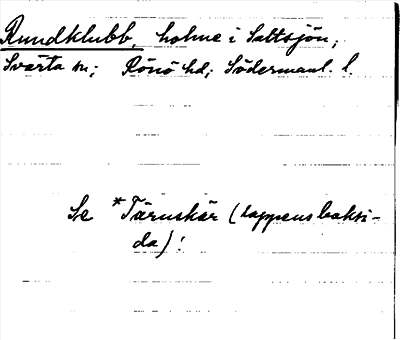 Rundklubb, holme i Saltsjön,
Svärta sn; Rönö hd; Södermanl. l.
Se *Tärnskär (lappens baksi-
da)!